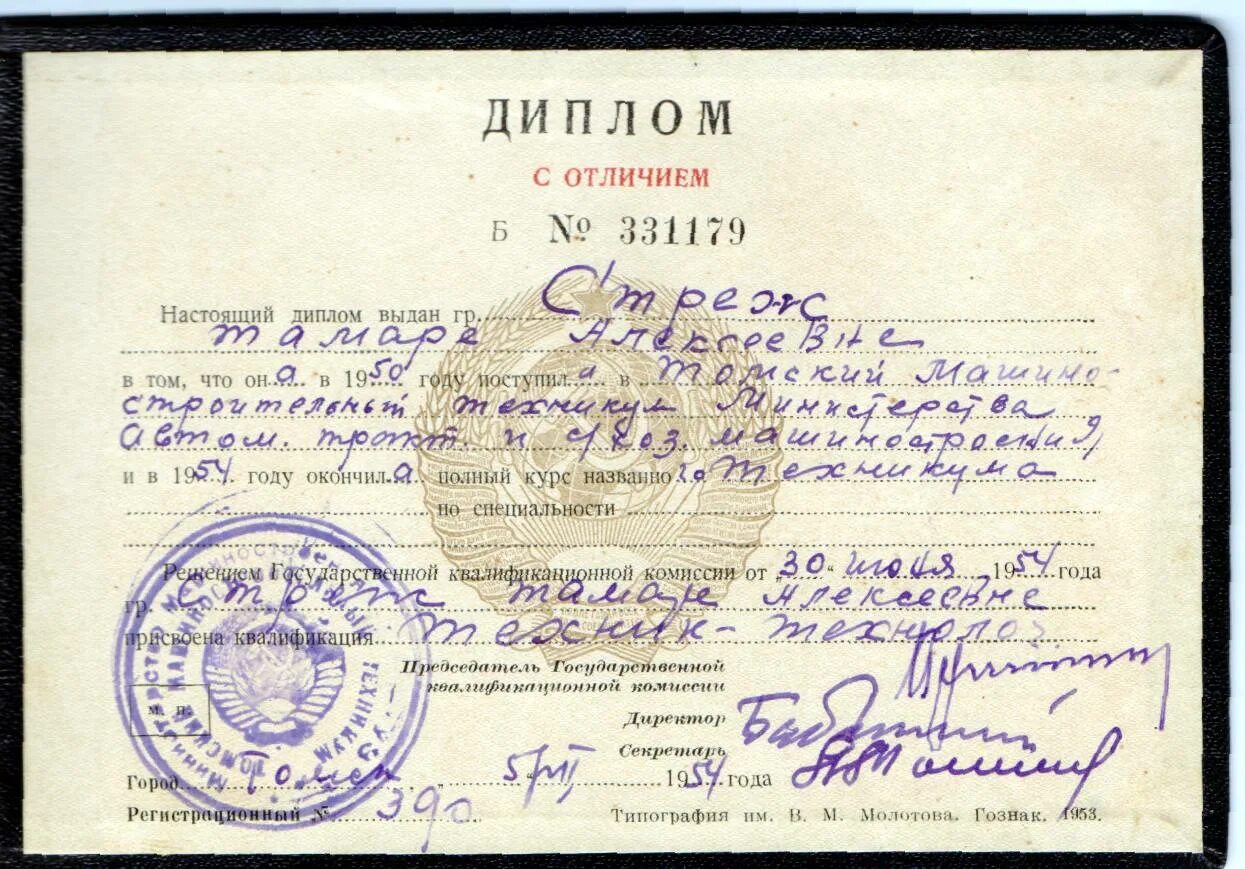 ДИПЛОМ
С ОТЛИЧИЕМ
Б № 331179
Настоящий диплом выдан гр. Стреж
Тамаре Алексеевне
в том, что она в 1950 году поступила в Томский Машино-
строительный техникум Министерства
Автом. тракт. и с/хоз. машиностроения
и в 1954 году окончила полный курс названного техникума
по специальности
Решением Государственной квалификационной комиссии от „30“ июля 1954 года
гр. Стреж Тамаре Алексеевне
присвоена квалификация техник-технолог
Председатель Государственной
квалификационной комиссии
Директор
Секретарь
М. П.
Город Томск „5/VII 1954 года
Регистрационный № 390
Типография им. В. М. Молотова. Гознак. 1953.